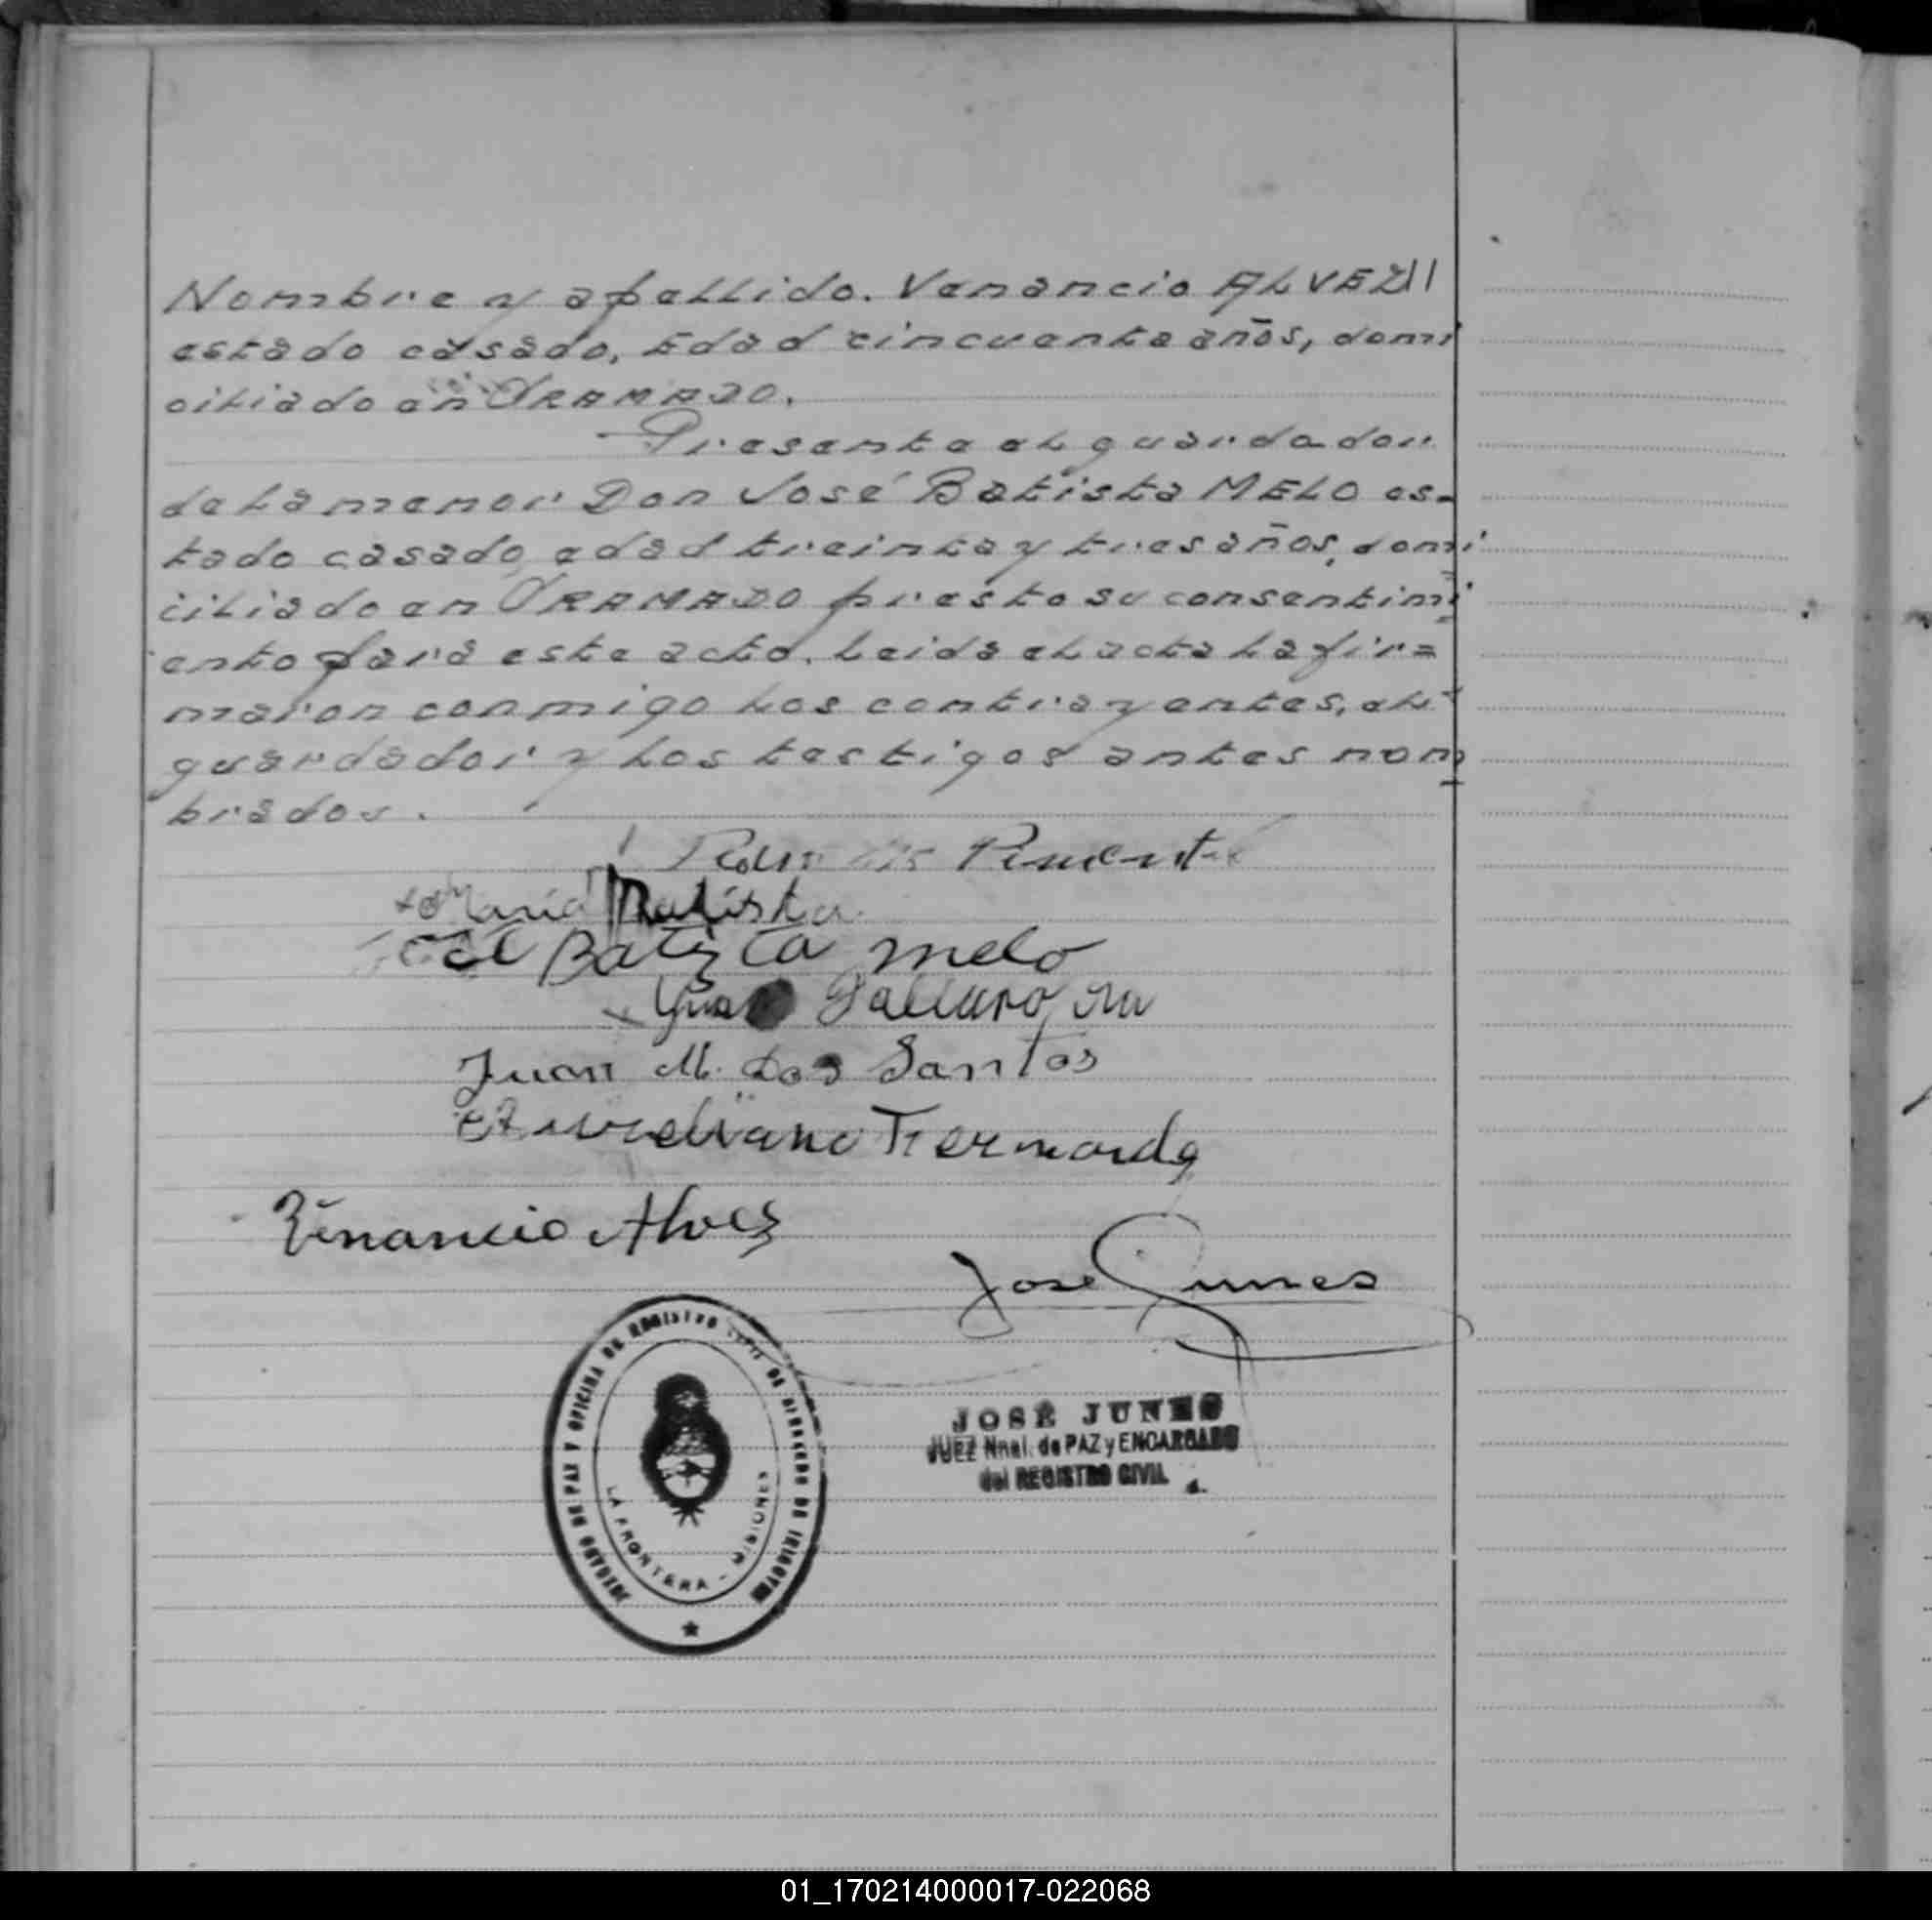 Nombre y apellido. Venancio ALVEZ//
estado casado, Edad cincuenta años, domi
ciliado en TRAMADO.
Presente el guardador
de la menor Don José Batista MELO es=
tado casado, edad treinta y tres años, domi
ciliado en TRAMADO presto su consentimi
ento para este acto. Leida el acta la fir=
maron conmigo los contrayentes, el
guardador y los testigos antes nom
brados.
Maria Batista
José Batista melo
Juan M. dos Santos
Venancio Alves
Jose Junes
JUZGADO DE PAZ Y OFICINA DE REGISTRO CIVIL DE BERNARDO DE IRIGOYEN
LA FRONTERA - MISIONES
JOSE JUNES
JUEZ Nnal. de PAZ y ENCARGADO
del REGISTRO CIVIL
01_170214000017-022068